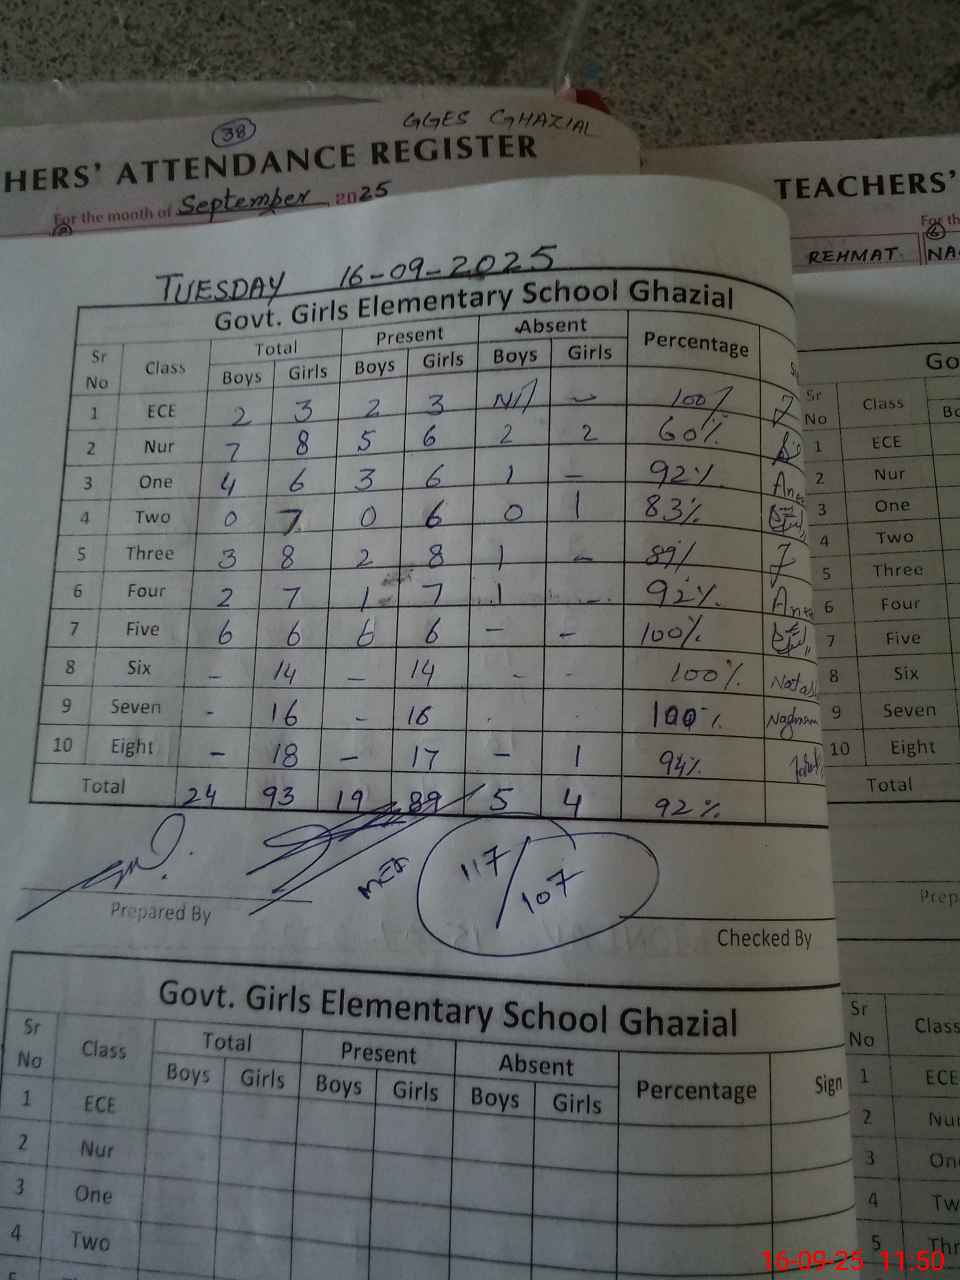 38 GGES GHAZIAL
HERS' ATTENDANCE REGISTER
For the month of September 2025
TEACHERS'
For th
REHMAT NA
TUESDAY 16-09-2025
Govt. Girls Elementary School Ghazial
Sr No Class Total Present Absent Percentage
Boys Girls Boys Girls Boys Girls
1 ECE 2 3 2 3 Nil - 100%
2 Nur 7 8 5 6 2 2 60%
3 One 4 6 3 6 1 - 92%
4 Two 0 7 0 6 0 1 83%
5 Three 3 8 2 8 1 - 89%
6 Four 2 7 1 7 1 - 92%
7 Five 6 6 6 6 - - 100%
8 Six - 14 - 14 - - 100%
9 Seven - 16 - 16 . . 100%
10 Eight - 18 - 17 - 1 94%
Total 24 93 19 89 5 4 92%
117/107
Prepared By
Checked By
Govt. Girls Elementary School Ghazial
Sr No Class Total Present Absent Percentage Sign
Boys Girls Boys Girls Boys Girls
1 ECE
2 Nur
3 One
4 Two
Go
Sr No Class
Bo
1 ECE
2 Nur
3 One
4 Two
5 Three
6 Four
7 Five
8 Six
9 Seven
10 Eight
Total
Prep
Sr No Class
1 ECE
2 Nu
3 On
4 Tw
5 Thr
16-09-25 11.50